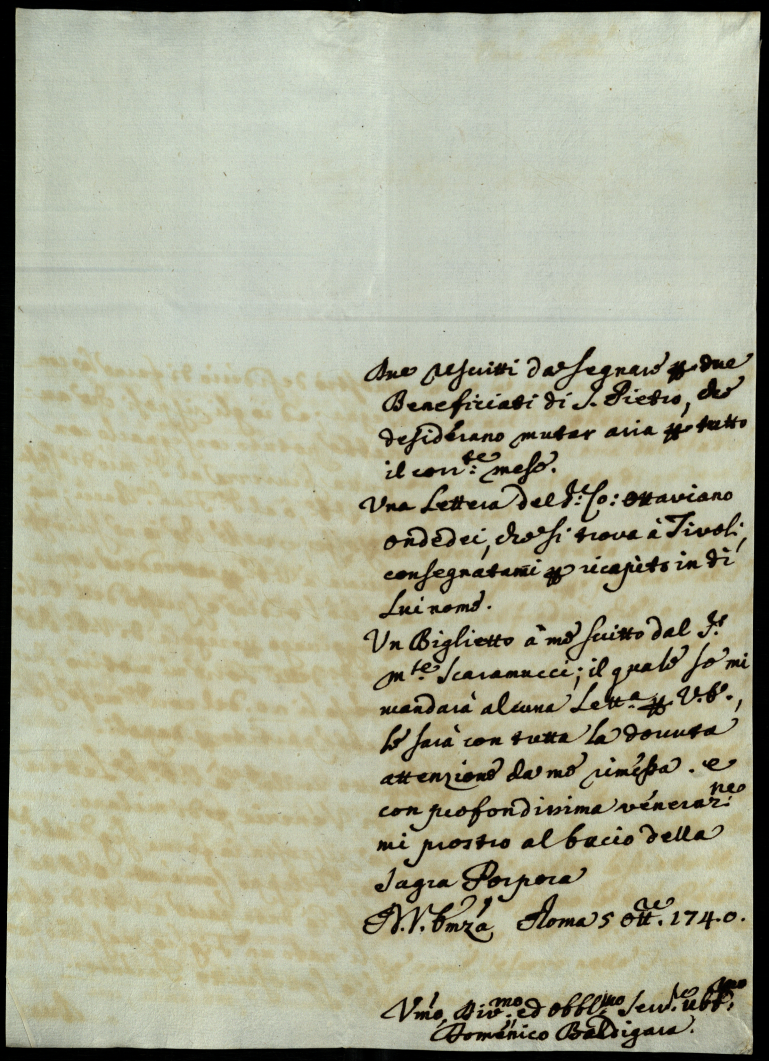 Due rescritti da segnare per due
Beneficiati di S. Pietro, che
desiderano mutar aria per tutto
il corr.te mese.
Una Lettera del S.r Co: Ottaviano
Ondedei, che si trova à Tivoli,
consegnatami per ricapito in di
Lui nome.
Un Biglietto à me scritto dal S.r
M.te Scaramucci; il quale se mi
mandarà alcuna Lett.a per V. E.,
le sarà con tutta la dovuta
attenzione da me rimessa. e
con profondissima veneraz.ne
mi prostro al bacio della
Sagra Porpora
Di V. Emza Roma 5 Ott.e 1740.
Vmo, Div.mo, ed Obbl.mo Serv.e
Domenico Baldigara.